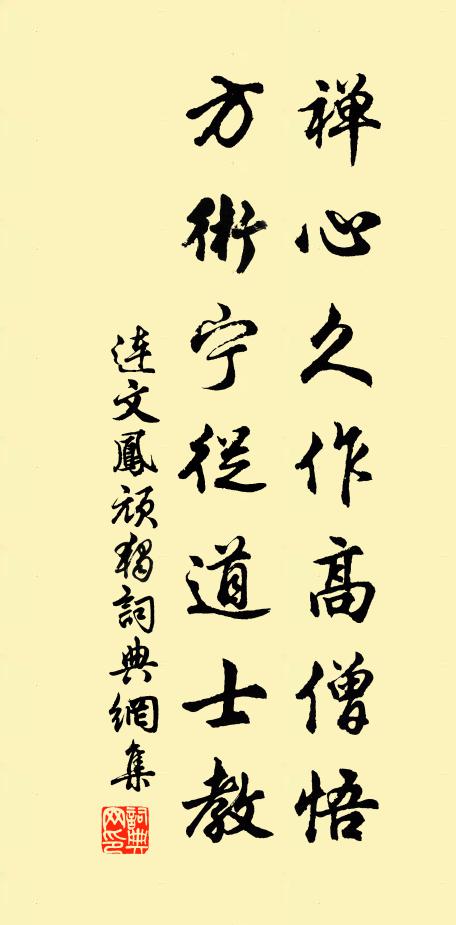 禅心久作高僧悟
方術宁從道士教
連文鳳頑獨詞典網集
詞典網印